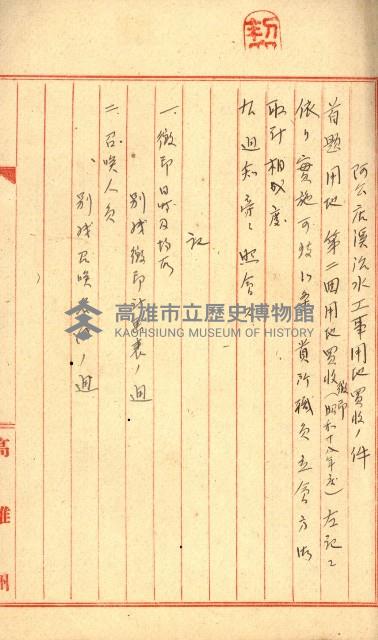 阿公店溪治水工事用地買收ノ件
首題用地第二回用地買收(昭和十八年度)左記ニ
徵印
依リ實施可致ニ付貴所職員立會方御
取計相成度
右通知旁々照會ス
記
一、徵印日時及場所
別紙徵印計畫表ノ通
二、召喚人員
別紙召喚ノ通
高雄州
高雄市立歷史博物館
KAOHSIUNG MUSEUM OF HISTORY